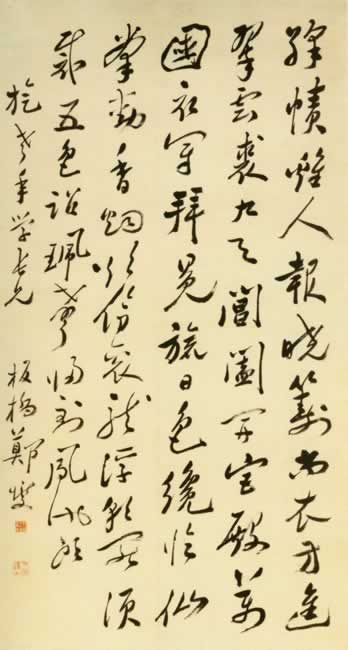 絳幘雞人報曉籌尚衣方進
翠雲裘九天閶闔开宮殿萬
國衣冠拜冕旒日色纔臨仙
掌動香烟欲傍袞龍浮朝罷須
裁五色詔珮聲归到鳳池頭
老年学長兄
板橋鄭燮